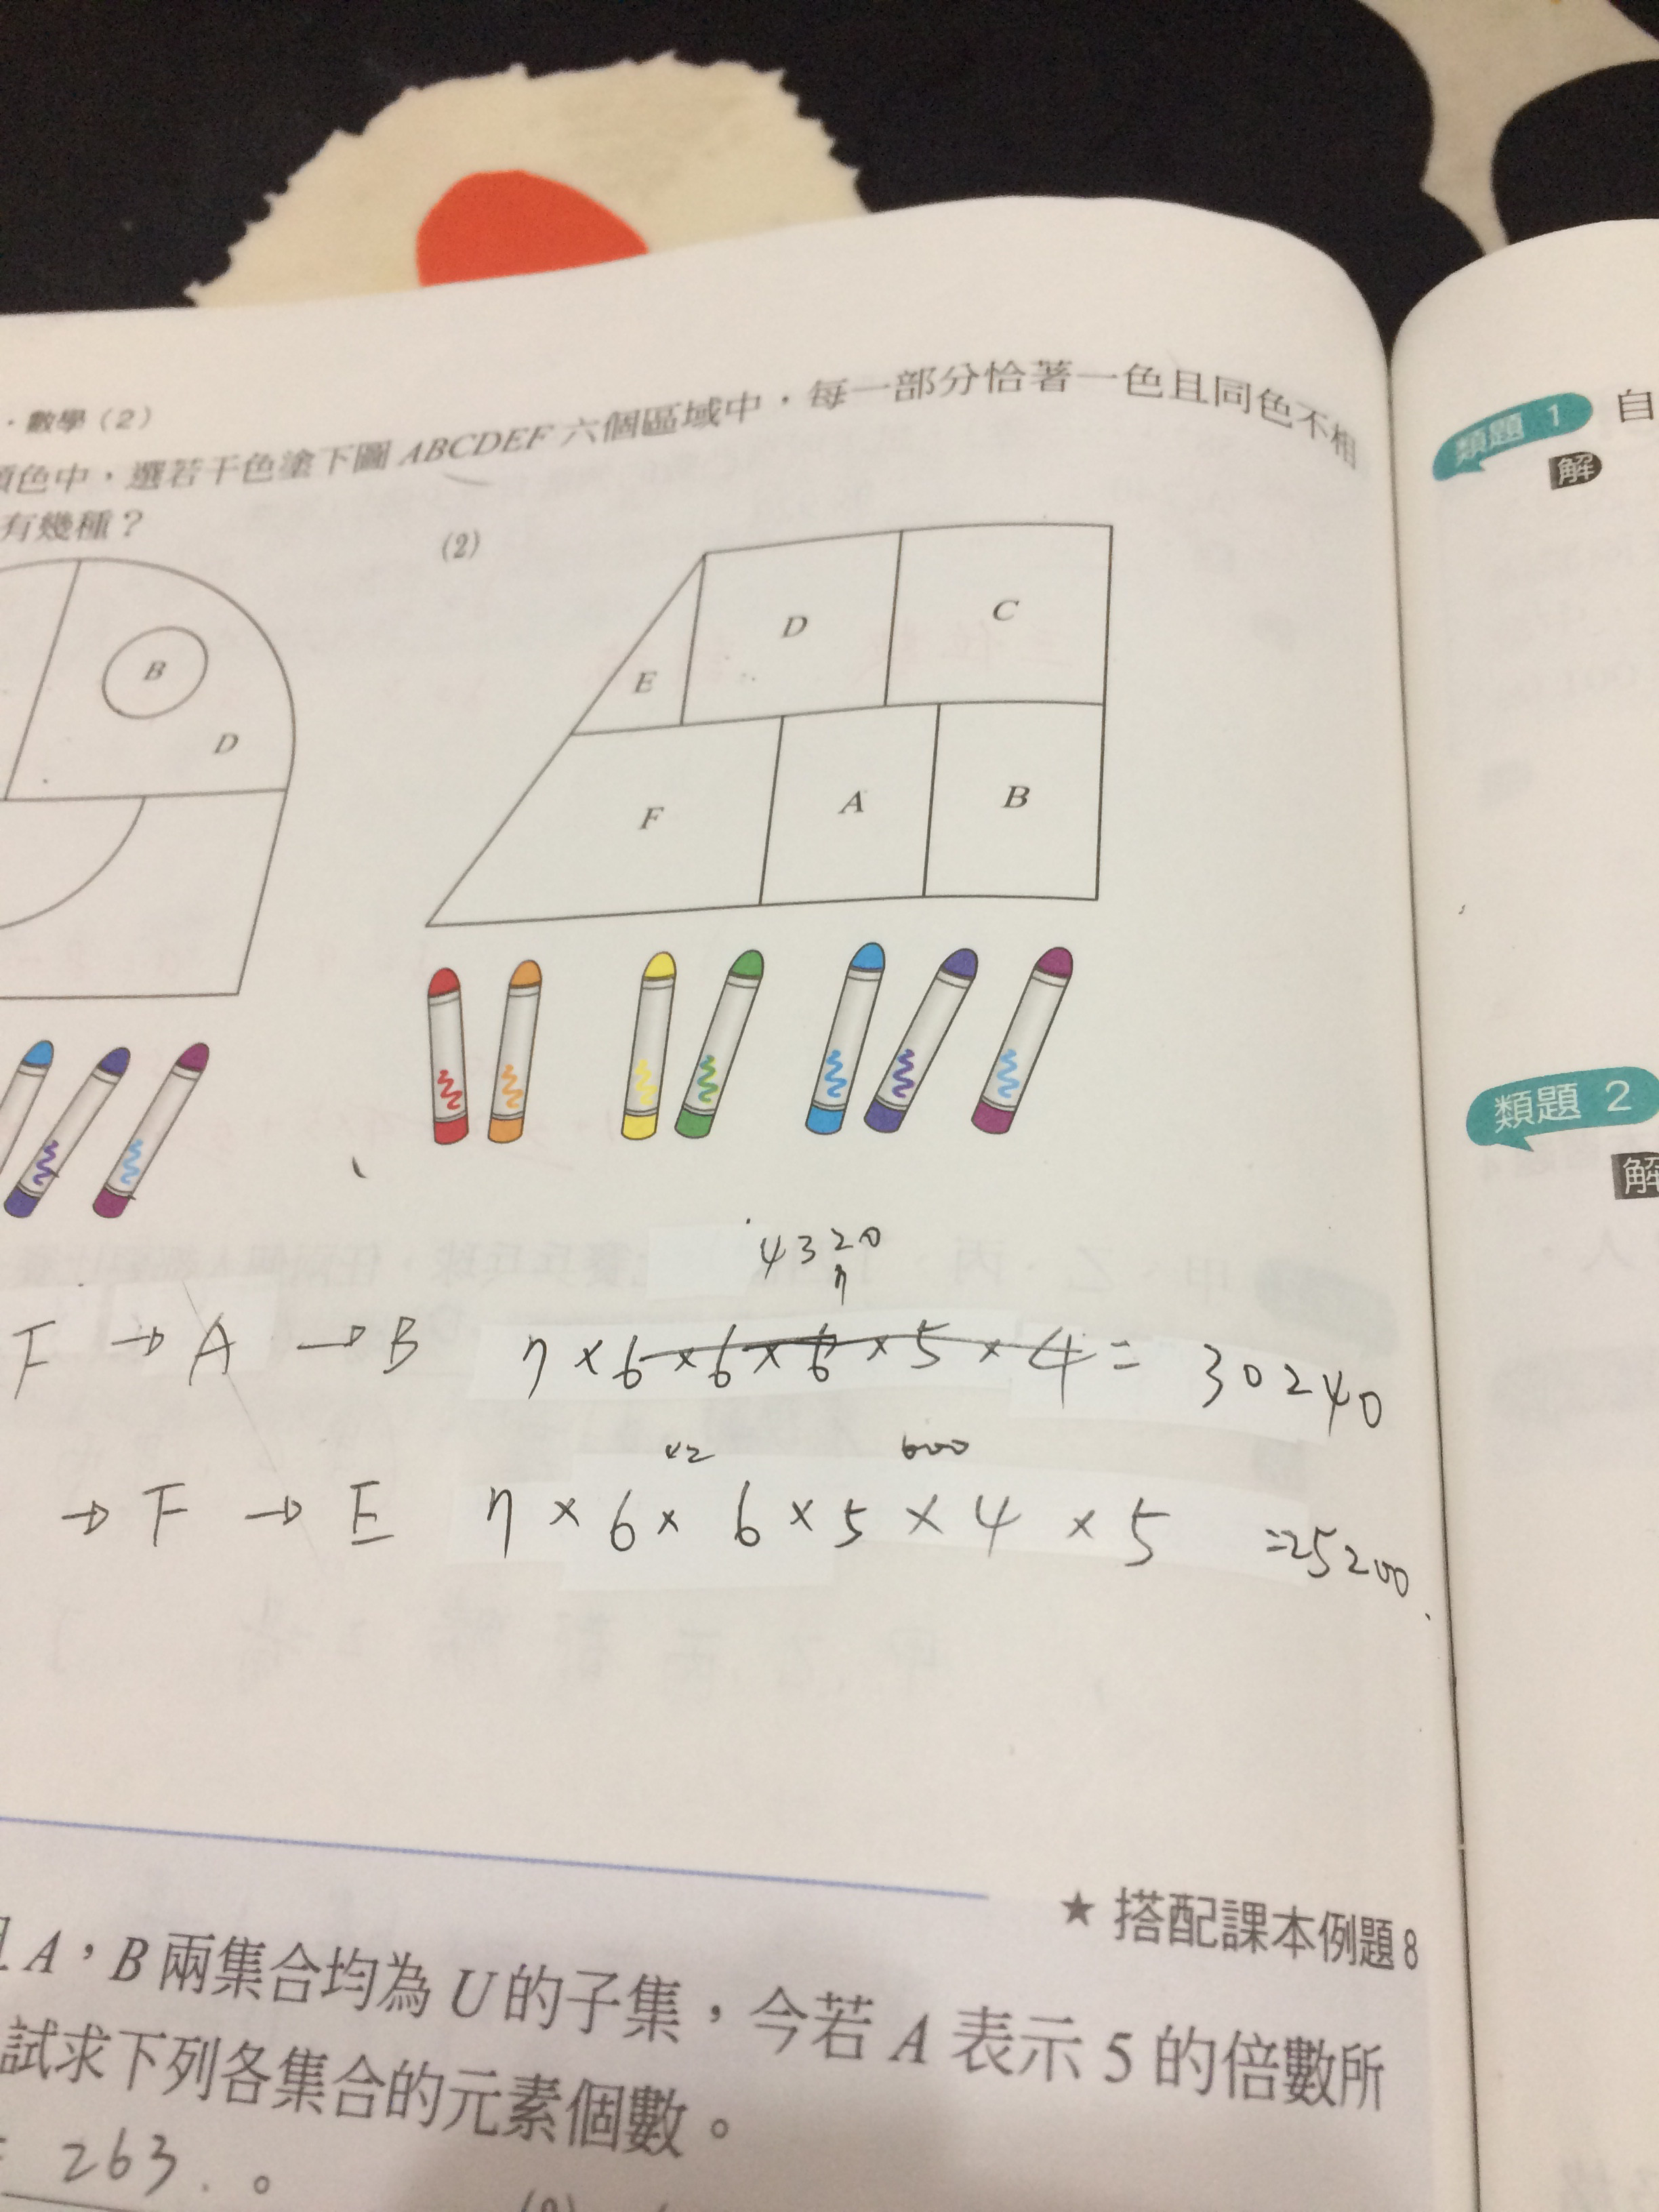 ·數學(2)
顏色中,選若干色塗下圖ABCDEF六個區域中,每一部分恰著一色且同色不相
有幾種?
(2)
B
D
D
C
E
F
A
B
4320
7
F → A → B 7×6×6×6×5×4= 30240
42 600
→ F → E 7×6×6×5×4×5 =25200
★ 搭配課本例題8
A,B兩集合均為U的子集,今若A表示5的倍數所
試求下列各集合的元素個數。
= 263.。
(2)
類題 1 自
解
類題 2
解